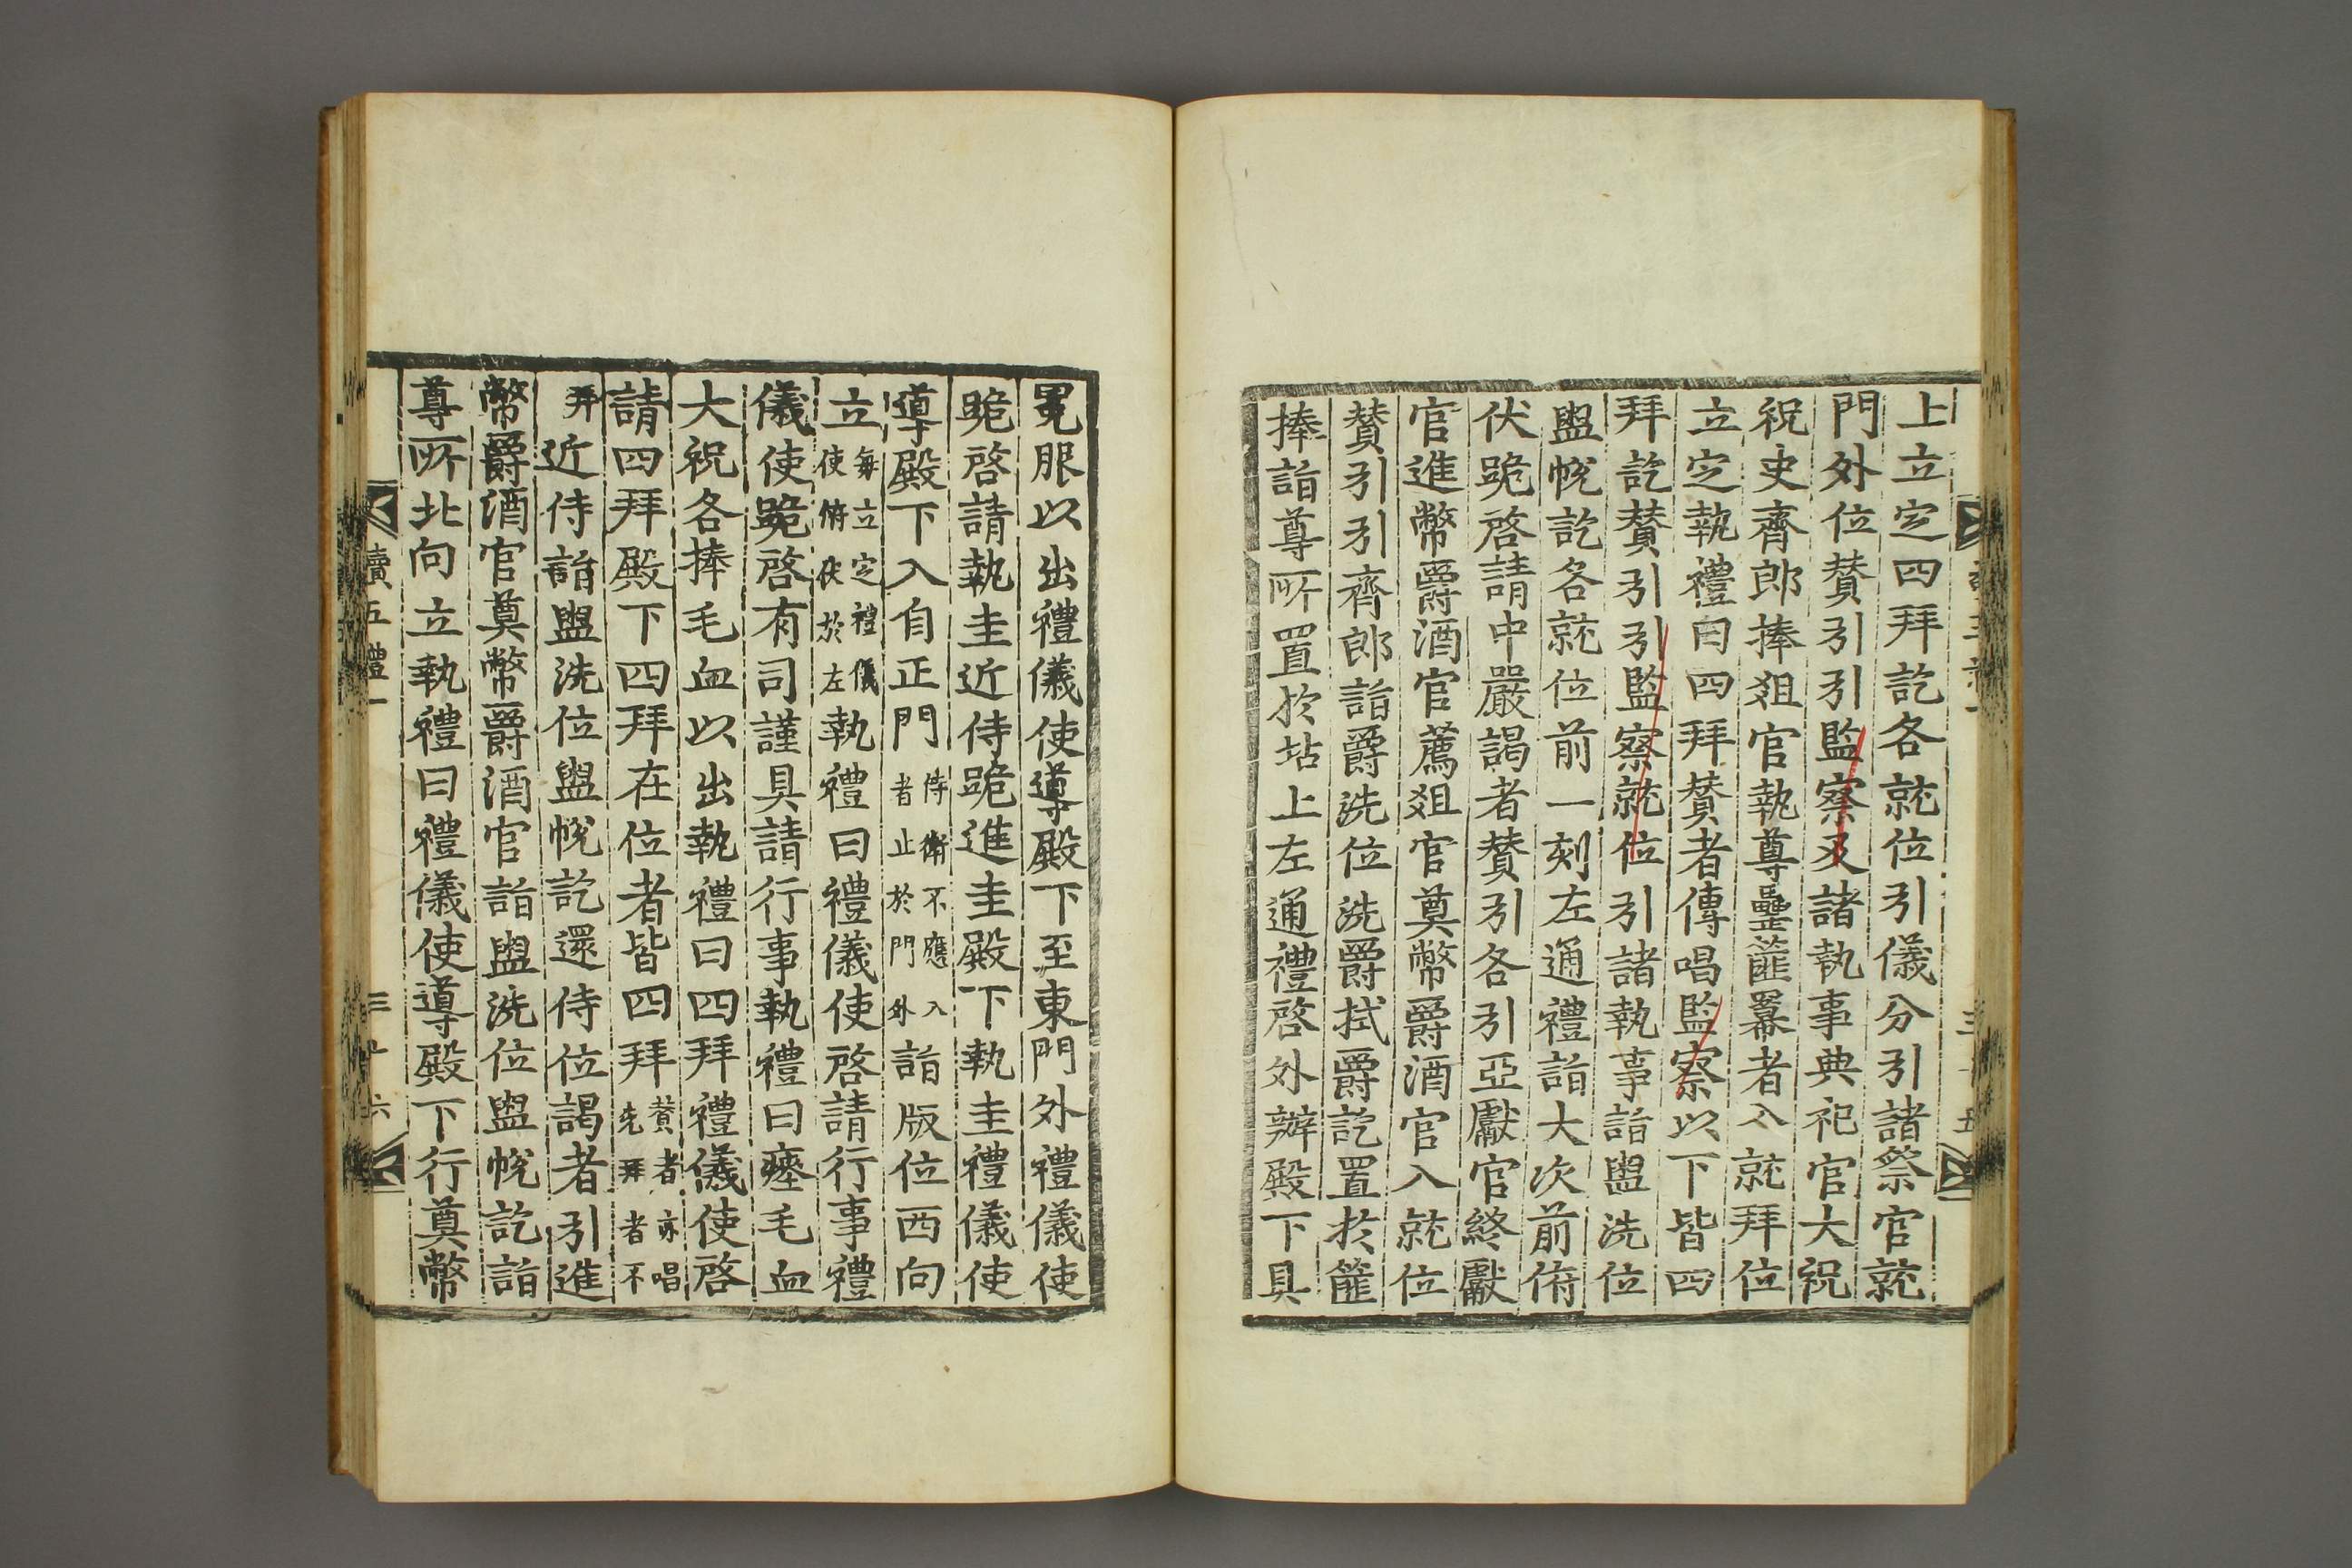 上立定四拜訖各就位引儀分引諸祭官就
門外位贊引引監察及諸執事典祀官大祝
祝史齊郎捧俎官執尊罍篚羃者入就拜位
立定執禮曰四拜贊者傳唱監察以下皆四
拜訖贊引引監察就位引諸執事詣盥洗位
盥帨訖各就位前一刻左通禮詣大次前俯
伏跪啓請中嚴謁者贊引各引亞獻官終獻
官進幣爵酒官薦俎官奠幣爵酒官入就位
贊引引齊郎詣爵洗位洗爵拭爵訖置於篚
捧詣尊所置於坫上左通禮啓外辦殿下具
冕服以出禮儀使導殿下至東門外禮儀使
跪啓請執圭近侍跪進圭殿下執圭禮儀使
導殿下入自正門侍衛不應入者止於門外詣版位西向
立每立定禮儀使俯伏於左執禮曰禮儀使啓請行事禮
儀使跪啓有司謹具請行事執禮曰瘞毛血
大祝各捧毛血以出執禮曰四拜禮儀使啓
請四拜殿下四拜在位者皆四拜贊者亦唱先拜者不
拜近侍詣盥洗位盥帨訖還侍位謁者引進
幣爵酒官奠幣爵酒官詣盥洗位盥帨訖詣
尊所北向立執禮曰禮儀使導殿下行奠幣
續五禮一
三十六